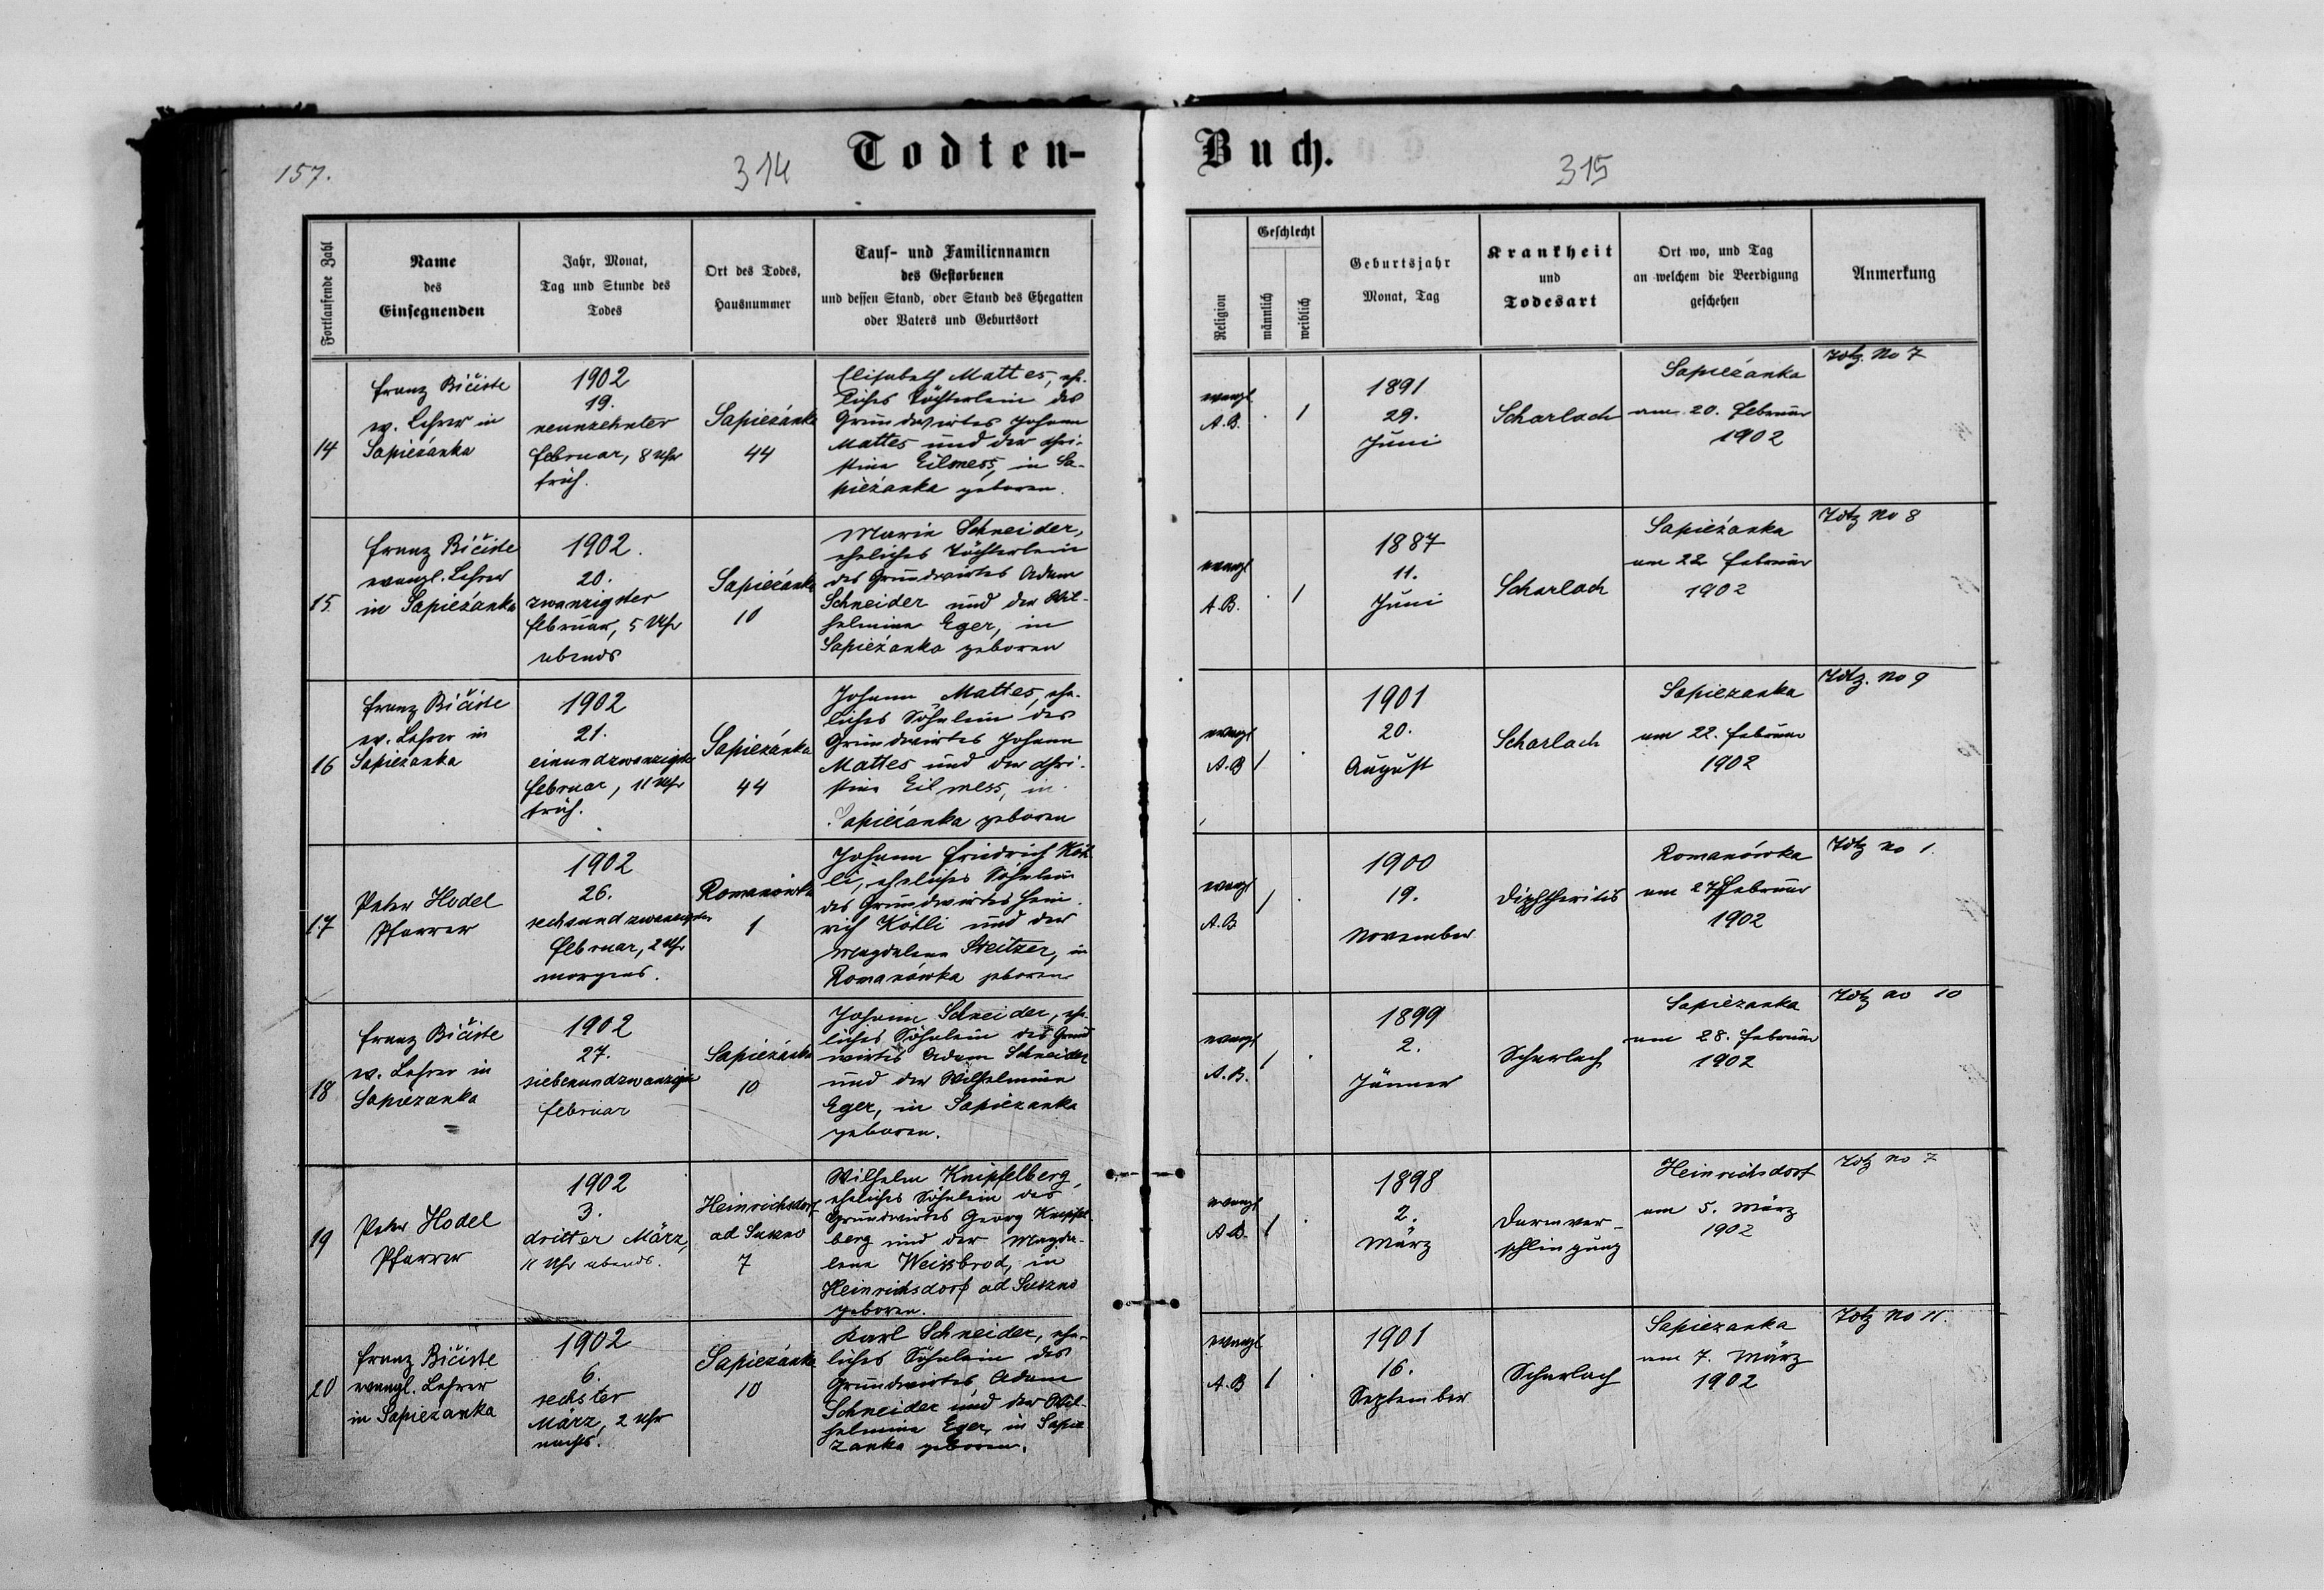 157.
314
Todten-
Buch.
315
Fortlaufende Zahl
Name
des
Einsegnenden
Jahr, Monat,
Tag und Stunde des
Todes
Ort des Todes,
Hausnummer
Tauf- und Familiennamen
des Gestorbenen
und dessen Stand, oder Stand des Ehegatten
oder Vaters und Geburtsort
Religion
Geschlecht
männlich
weiblich
Geburtsjahr
Monat, Tag
Krankheit
und
Todesart
Ort wo, und Tag
an welchem die Beerdigung
geschehen
Anmerkung
14
Franz Bičiste
ev. Lehrer in
Sapieżanka
1902
19.
neunzehnter
Februar, 8 Uhr
früh.
Sapieżanka
44
Elisabeth Mattes, ehe-
liches Töchterlein des
Grundwirtes Johann
Mattes und der Chri-
stine Eilmess, in Sa-
pieżanka geboren.
evangl
A.B.
1
1891
29.
Juni
Scharlach
Sapieżanka
am 20. Februar
1902
Totz. No 7
15
Franz Bičiste
evangl. Lehrer
in Sapieżanka
1902.
20.
zwanzigster
Februar, 5 Uhr
abends
Sapieżanka
10
Marie Schneider,
eheliches Töchterlein
des Grundwirtes Adam
Schneider und der Wil-
helmine Eger, in
Sapieżanka geboren
evangl
A.B.
1
1887
11.
Juni
Scharlach
Sapieżanka
am 22 Februar
1902
Totz No 8
16
Franz Bičiste
ev. Lehrer in
Sapieżanka
1902
21.
einundzwanzigster
Februar, 11 Uhr
früh.
Sapieżanka
44
Johann Mattes, ehe-
liches Söhnlein des
Grundwirtes Johann
Mattes und der Chri-
stine Eilmess, in
Sapieżanka geboren
evangl
A.B
1
1901
20.
August
Scharlach
Sapiezanka
am 22. Februar
1902
Totz. No 9
17
Peter Hodel
Pfarrer
1902
26.
sechsundzwanzigster
Februar, 2 Uhr
morgens.
Romanówka
1
Johann Friedrich Köh-
li, eheliches Söhnlein
des Grundwirtes Hein-
rich Köhli und der
Magdalena Streitzer, in
Romanówka geboren
evangl
A.B.
1
1900
19.
November
Diphtheritis
Romanówka
am 27 Februar
1902
Totz no 1.
18
Franz Bičiste
ev. Lehrer in
Sapiezanka
1902
27.
siebenundzwanzigster
Februar
Sapieżanka
10
Johann Schneider, ehe-
liches Söhnlein des Grund
wirtes Adam Schneider
und der Wilhelmine
Eger, in Sapiezanka
geboren.
evangl
A.B.
1
1899
2.
Jänner
Scharlach
Sapiezanka
am 28. Februar
1902
Totz no 10
19
Peter Hodel
Pfarrer
1902
3.
dritter März,
11 Uhr abends.
Heinrichsdorf
ad Suszno
7
Wilhelm Knipfelberg,
eheliches Söhnlein des
Grundwirtes Georg Knipfel-
berg und der Magda-
lena Weissbrod, in
Heinrichsdorf ad Suszno
geboren.
evangl
A.B.
1
1898
2.
März
Darmver-
schlingung
Heinrichsdorf
am 5. März
1902
Totz no 7
20
Franz Bičiste
evangl. Lehrer
in Sapieżanka
1902
6.
sechster
März, 2 Uhr
nachts.
Sapieżanka
10
Karl Schneider, ehe-
liches Söhnlein des
Grundwirtes Adam
Schneider und der Wil-
helmine Eger, in Sapie
zanka geboren.
evangl
A.B
1
1901
16.
September
Scharlach
Sapiezanka
am 7. März
1902
Totz No 11.